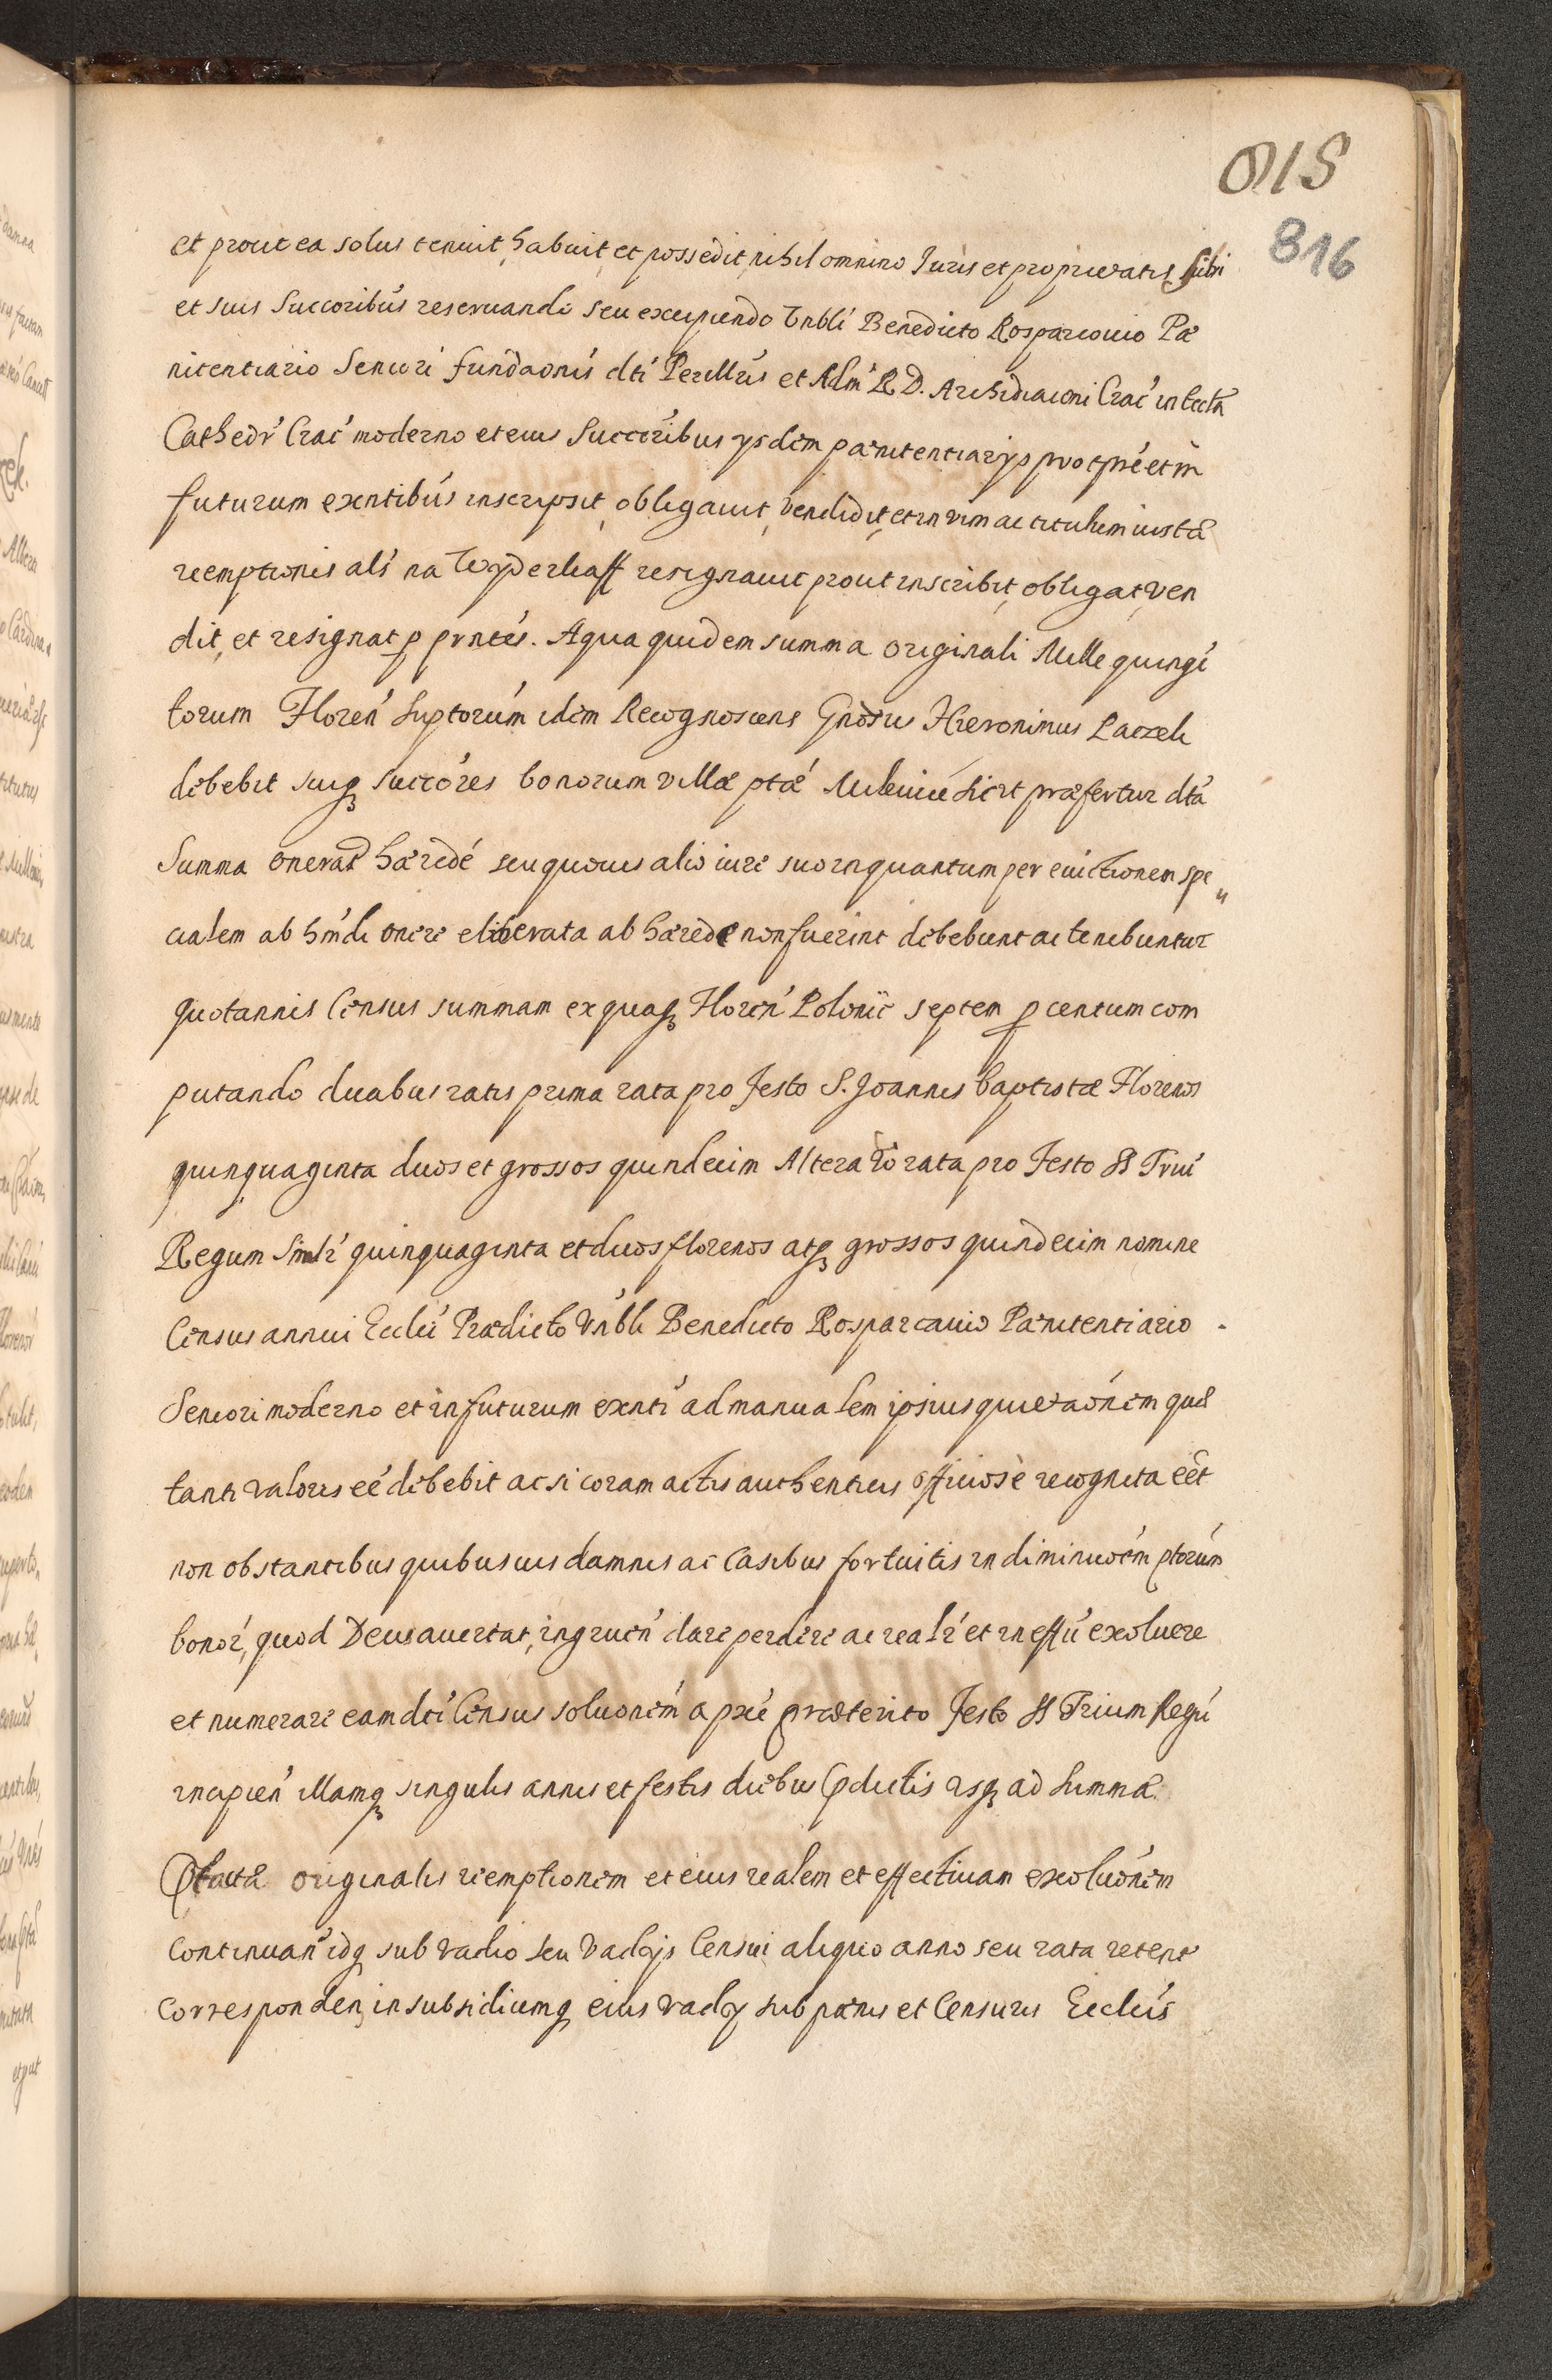 815
816
et prout ea solus tenuit, habuit et possedit, nihil omnino Juris et proprietatis sibi
et suis Succoribus reseruando seu excipiendo Vnbli Benedicto Rosparcouio Pæ
nitentiario Seniori fundaonis dti Perillris et Adm R. D. Archidiaconi Crac in Eccla
Cathedr Crac moderno et eius Succoribus ysdem pænitentiarys pro tpre et in
futurum exntibus inscripsit, obligauit, vendidit, et in vim ac titulum iustæ
reemptionis als na Wyderkaff resignauit prout inscribit, obligat, ven
dit, et resignat p prntes. A qua quidem summa originali Mille quinge
torum Floren suptorum idem Recognoscens Gnosus Hieronimus
debebit suiq succores bonorum villæ ptæ sicut præfertur dta
Summa onerat hærede seu quouis alio iure suo inquantum per euictionem spe
cialem ab hmdi onere eliberata ab hærede non fuerint debebunt ac tenebuntur
quotannis Census summam ex quaq Floren Polonic septem p centum com
putando duabus ratis prima rata pro Festo S. Joannis baptistæ Florenos
quinquaginta duos et grossos quindecim Altera vo rata pro Festo SS Triu
Regum Simlr quinquaginta et duos florenos atq grossos quindecim nomine
Census annui Ecclci Prædicto Vnbli Benedicto Rosparcauio Pænitentiario
Seniori moderno et in futurum exnti ad manualem ipsius quietaonem quæ
tanti valoris eé debebit ac si coram actis authenticis officiosè recognita eet
non obstantibus quibusuis damnis ac Casibus fortuitis in diminuoem ptorum
bonor, quod Deus auertat, ingruen dare pendere ac realr et in effu exoluere
et numerare eamdti Census soluonem a pxe præterito Festo SS Trium Regu
incipien illamq singulis annis et festis diebus pdictis vsq ad Summæ
originalis reemptionem et eius realem et effectiuam exoluonem
continuan idq sub vadio seu vadys Censui aliquo anno seu rata retent
corresponden, in subsidiumq eius vady sub pænis et Censuris Ecclcis